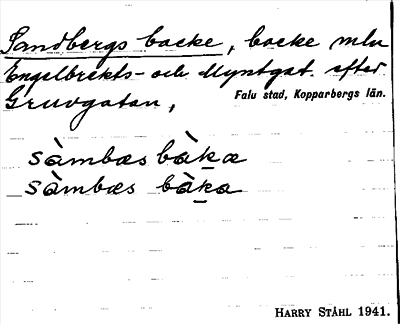 Sandbergs backe, backe mlu
Engelbrekts- och Myntgat. efter
Gruvgatan,
Falu stad, Kopparbergs län.
sàmbæs bàk̠æ
sàmbæs bàk̠a
HARRY STÅHL 1941.